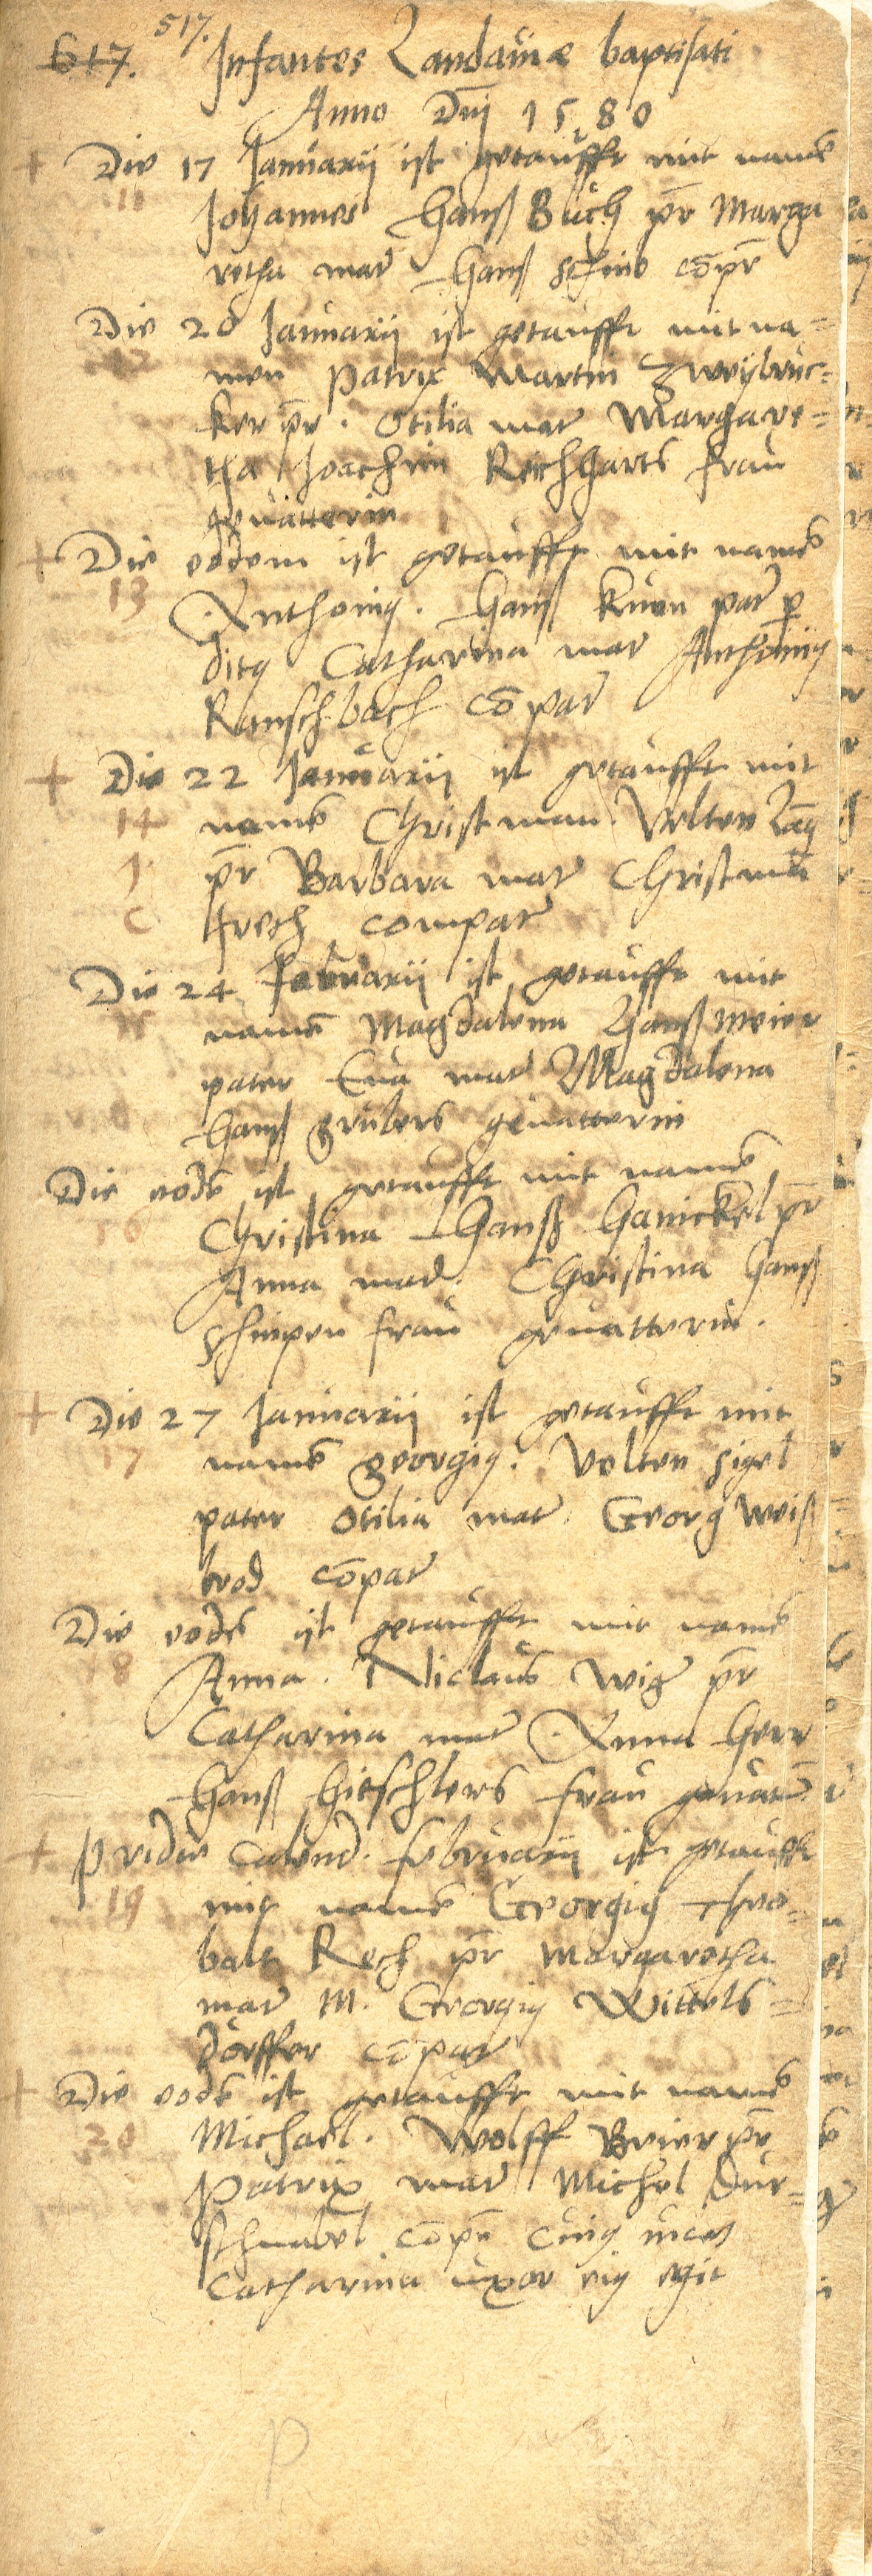 617. 517.
Infantes Landauiæ baptisati
Anno Dnj 1580
+ Die 17 Januarij ist getaufft mit namē
11 Johannes Hanß Buch pr Marga
retha mat Hanß schine cōpr
Die 20 Januarij ist getaufft mit na=
12 men Patrix Martin Zweijbruc=
ker pr. Otilia mat Margare=
tha Joachim Reichharts frau
geuatterin
+ Die eodem ist getaufft mit namē
13 Anthonig. Hanß Kuen pat p
ditg Catharina mat Anthonig
Ranschbach cōpat
+ Die 22 Januarij ist getaufft mit
14 namē Christman. Velten Lāg
pr Barbara mat Christmā
fresch compat
Die 24 Februarij ist getaufft mit
15 namē Magdalena Hanß meier
pater Eua mat Magdalena
Hanß grubers geuatterin
Die eodē ist getaufft mit namē
16 Christina Hanß Hanickel pr
Anna mat. Christina Hanß
schimpen frau geuatterin.
+ Die 27 Januarij ist getaufft mit
17 namē georgig. Velten sigel
pater otilia mat. Georg weiß
brod cōpat
Die eodē ist getaufft mit namē
18 Anna. Niclaus wig pr
Catharina mat Anna Herr
Hanß Hieschlers frau geuatt
+ pridie Calend. februarij ist getaufft
19 mit namē Georgig theo=
balt Rech pr margaretha
mat M. Georgig Wittels=
dörffer cōpat
+ Die eodē ist getaufft mit namē
20 Michael. Wolff Beier pr
Patrix mat Michel Dur=
schnabel cōpr cuig uices
Catharina uxor eig egit
P